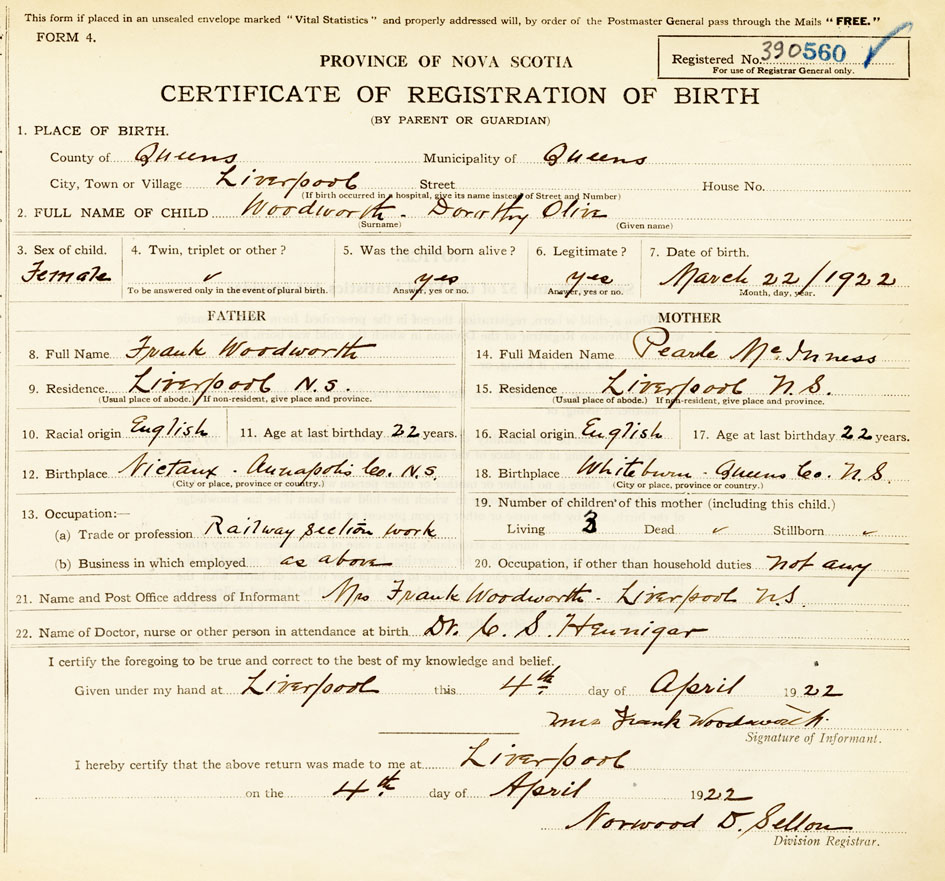 This form if placed in an unsealed envelope marked "Vital Statistics" and properly addressed will, by order of the Postmaster General pass through the Mails "FREE."
FORM 4.
Registered No. 390560
For use of Registrar General only.
PROVINCE OF NOVA SCOTIA
CERTIFICATE OF REGISTRATION OF BIRTH
(BY PARENT OR GUARDIAN)
1. PLACE OF BIRTH.
County of Queens Municipality of Queens
City, Town or Village Liverpool Street House No.
(If birth occurred in a hospital, give its name instead of Street and Number)
2. FULL NAME OF CHILD Woodworth - Dorothy Olive
(Surname) (Given name)
3. Sex of child. 4. Twin, triplet or other? 5. Was the child born alive? 6. Legitimate? 7. Date of birth.
Female ✓ yes yes March 22/1922
To be answered only in the event of plural birth. Answer, yes or no. Answer, yes or no. Month, day, year.
FATHER MOTHER
8. Full Name Frank Woodworth 14. Full Maiden Name Pearle McInness
9. Residence. Liverpool N.S. 15. Residence Liverpool N.S.
(Usual place of abode.) If non-resident, give place and province. (Usual place of abode.) If non-resident, give place and province.
10. Racial origin English 11. Age at last birthday 22 years. 16. Racial origin English 17. Age at last birthday 22 years.
12. Birthplace Nictaux - Annapolis Co. N.S. 18. Birthplace Whiteburn - Queens Co. N.S.
(City or place, province or country.) (City or place, province or country.)
19. Number of children of this mother (including this child.)
13. Occupation:—
(a) Trade or profession Railway section work Living 3 Dead ✓ Stillborn ✓
(b) Business in which employed as above 20. Occupation, if other than household duties not any
21. Name and Post Office address of Informant Mrs Frank Woodworth - Liverpool N.S.
22. Name of Doctor, nurse or other person in attendance at birth Dr. C. S. Hennigar
I certify the foregoing to be true and correct to the best of my knowledge and belief.
Given under my hand at Liverpool this 4th day of April 1922
Mrs Frank Woodworth.
Signature of Informant.
I hereby certify that the above return was made to me at Liverpool
on the 4th day of April 1922
Norwood D. Sellon
Division Registrar.